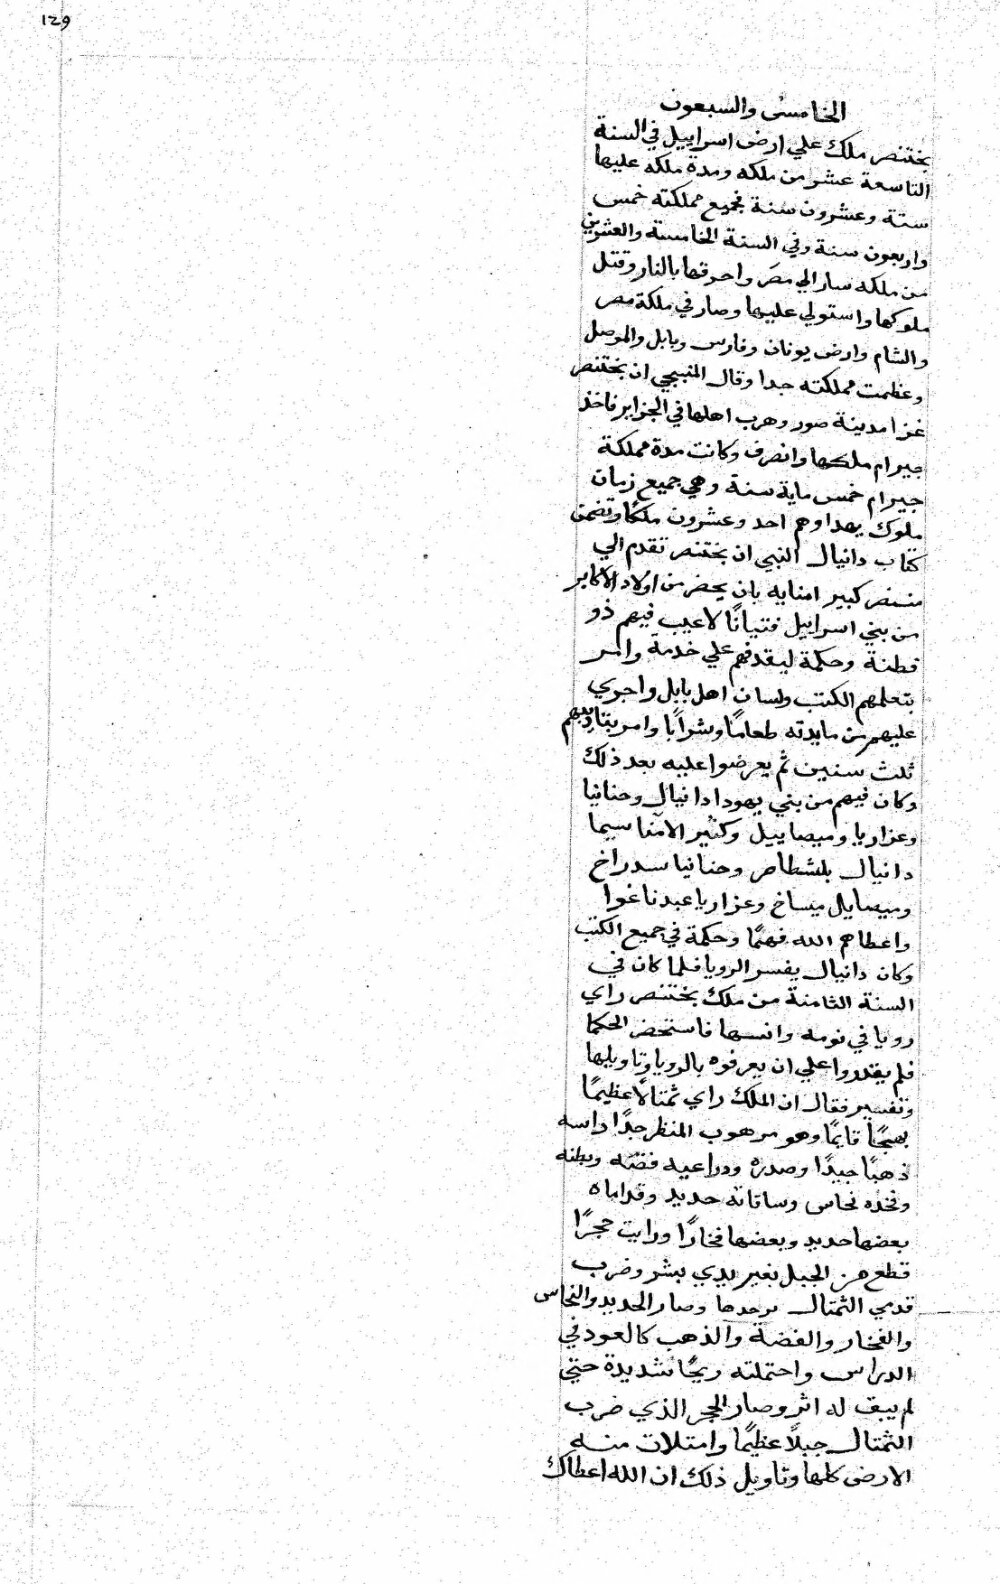 ١٢٩
الخامس والسبعون
بختنصر ملك علي ارض اسراييل في السنة
التاسعة عشر من ملكه ومدة ملكه عليها
ستة وعشرون سنة فجميع مملكته خمس
واربعون سنة وفي السنة الخامسة والعشرين
من ملكه سار الي مصر واحرقها بالنار وقتل
ملوكها واستولي عليها وصار في ملكة مصر
والشام وارض يونان وفارس وبابل والموصل
وعظمت مملكته جدا وقال المنبجي ان بختنصر
غزا مدينة صور وهرب اهلها في الجزاير فاخذ
جيرام ملكها وانصرف وكانت مدة مملكة
جيرام خمس ماية سنة وهي جميع زمان
ملوك يهدا وهم احد وعشرون ملكا وتضمن
كتاب دانيال النبي ان بختنصر تقدم الي
كبير امنايه بان يحضر من اولاد الاكابر
من بني اسراييل فتيانًا لاعيب فيهم ذو
فطنة وحكمة ليقدفهم علي خدمة وامر
بتعلمهم الكتب ولسان اهل بابل واجري
عليهم من مايدته طعامًا وشرابًا وامر بتاديبهم
ثلث سنين ثم يعرضوا عليه بعد ذلك
وكان فيهم من بني يهودا دانيال وحنانيا
وعزاريا وميصاييل وكثير الامنا سيما
دانيال بلشطاصر وحنانيا سدراخ
وميصايل ميساخ وعزاريا عبدناغوا
واعطاهم الله فهمًا وحكمة في جميع الكتب
وكان دانيال يفسر الرويا فلما كان في
السنة الثامنة من ملك بختنصر راي
رويا في نومه وانسها فاستحضر الحكما
فلم يقدروا علي ان يعرفوه بالرويا وتاويلها
وتفسير فقال ان الملك راي تمتالًا عظيمًا
بهيجًا قايمًا وهو مرهوب المنظر جدًا راسه
ذهبًا جيدًا وصدره ودراعيه فضه وبطنه
وفخده نحاس وساقاته حديد وقداماه
بعضها حديد وبعضها فخارًا ورايت حجرًا
قطع من الجبل بغير يدي بشر وضرب
قدمي الثمتال وصار الحديد والنحاس
والفخار والفضة والذهب كالعود في
الدراس واحتملته ريحًا شديدة حتي
لم يبق له اثر وصار الحجر الذي ضرب
الثمتال جبلًا عظيمًا وامتلات منه
الارض كلها وتاويل ذلك ان الله اعطاك